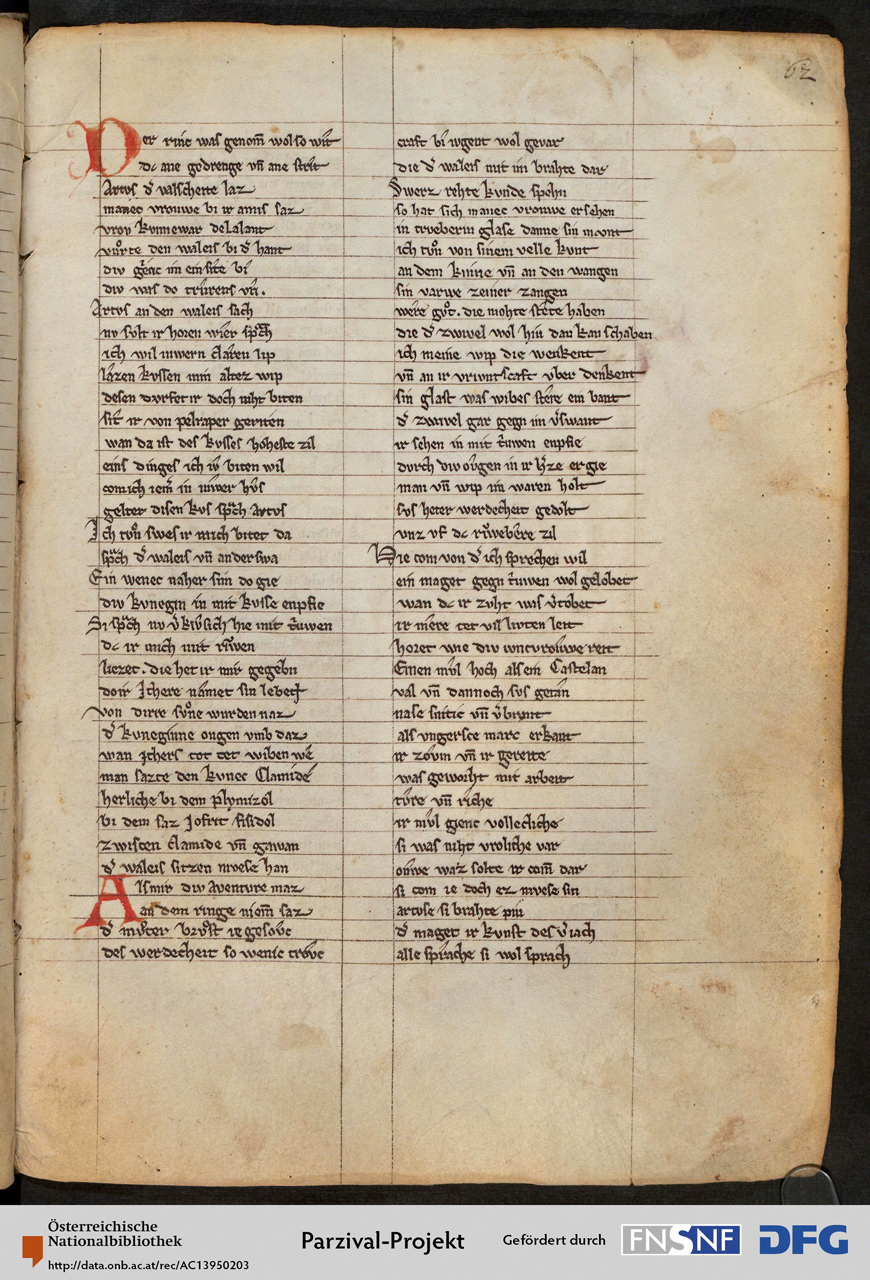 62
Der rinc was genom̅ wol so wit
dc ane gedrenge vn̅ ane strit
Artus d̾ valscheite laz
manec vrouwe bi ir amis saz
vrov kvnnewar de Lalant
vuͦrte den waleis bi d̾ hant
div gêac im einsite bi
div was do trvrens vri.
Artus an den waleis sach
nv svlt ir horen wier sp͛ch
ich wil iuwern claren lip
lazen kvssen min altez wip
desen dvrfet ir doch niht biten
sit ir von pelraper geriten
wan da ist des kvsses hoheste zil
eins dinges ich iv biten wil
comich iem̅ in iuwer hvs
gelter disen kvs sp͛ch Artvs
Ich tvͦn swes ir mich bitet da
sp͛ch d̾ waleis vn̅ anderswa
Ein wenec naher sim do gie
div kvnegin in mit kvsse enpfie
Si sp͛ch nv v̾kivsich hie mit t͛uwen
dc ir mich mit riwen
liezet. die het ir mir gegebn
do ir Ithere namet sin lebeɳ
von dirre svͦne wurden naz
d̾ kvneginne ougen vmb daz
wan Ithers tot tet wiben we
man sazte den kvnec Clamide
herliche bi dem plymizol
bi dem saz Jofrit fisidol
zwiscen clamide vn̅ gawan
d̾ waleis sitzen mvese han
Als mir div Aventure maz
an dem ringe niom̅ saz
d̾ mvͦter brvͦst ie gesovc
des werdecheit so wenic trovc
craft bi ivgent wol gevar
die d̾ waleis mit im brahte dar
Swerz rehte kvnde spehn
so hat sich manec vrouwe ersehen
in trveberm glase danne sin mvnt
ich tvͦn von sinem velle kvnt
an dem kinne vn̅ an den wangen
sin varwe zeiner zangen
were gvͦt. die mohte stete haben
die d̾ zwivel wol hin dan kan schaben
ich meine wip die wenkent
vn̅ an ir vrivntscaft vber denkent
sin glast was wibes stete ein bant
d̾ zwivel gar gegn im v̾swant
ir sehen in mit t͛uwen enpfie
dvrch div ovgen in ir h̾ze er gie
man vn̅ wip im waren holt
svs heter werdecheit gedolt
vnz vf dc rivwebere zil
Hie com von d̾ ich sprechen wil
ein maget gegn t͛uwen wol gelobet
wan dc ir zvht was v̾tobet
ir mere tet vil livten leit
horet wie div iuncvrouwe reit
Einen mvl hoch als ein Castelan
val vn̅ dannoch svs getan
nase snitic vn̅ v̾brant
als vngersce marc erkant
ir zovm vn̅ ir gereite
was geworht mit arbeit
tivre vn̅ riche
ir mvl gienc volleclliche
si was niht vroliche var
ouwe waz solte ir com̅ dar
si com ie doch ez mvese sin
artvse si brahte pin
d̾ maget ir kvnst des v̾iach
alle sprache si wol sprach
Österreichische
Nationalbibliothek
http://data.onb.ac.at/rec/AC13950203
Parzival-Projekt
Gefördert durch
FNSNF
DFG